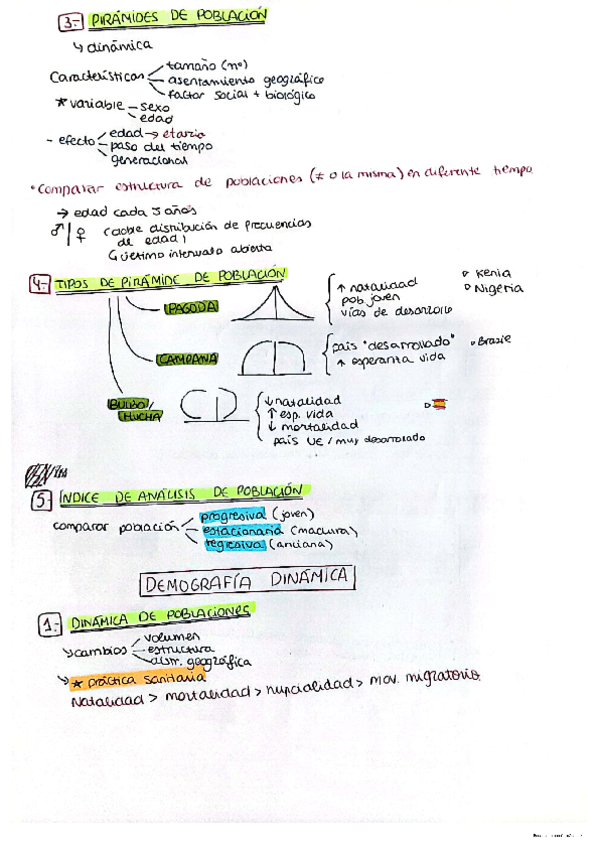 3.- PIRÁMIDES DE POBLACIÓN
↳ dinámica
Características
tamaño (nº)
asentamiento geográfico
factor social + biológico
* variable
sexo
edad
- efecto
edad → etario
paso del tiempo
generacional
• Comparar estructura de poblaciones (≠ o la misma) en diferente tiempo
→ edad cada 5 años
♂ | ♀ (doble distribución de frecuencias
de edad)
↳ último intervalo abierto
4.- TIPOS DE PIRÁMIDE DE POBLACIÓN
PAGODA
↑ natalidad
pob joven
vías de desarrollo
▷ Kenia
▷ Nigeria
CAMPANA
país "desarrollado"
↑ esperanza vida
▷ Brasil
BULBO/
HUCHA
↓ natalidad
↑ esp. vida
↓ mortalidad
país UE / muy desarrollado
5.- ÍNDICE DE ANÁLISIS DE POBLACIÓN
comparar población
progresiva (joven)
estacionaria (madura)
regresiva (anciana)
DEMOGRAFÍA DINÁMICA
1.- DINÁMICA DE POBLACIONES
↳ cambios
volumen
estructura
distr. geográfica
↳ * práctica sanitaria
Natalidad > mortalidad > nupcialidad > mov. migratorio.